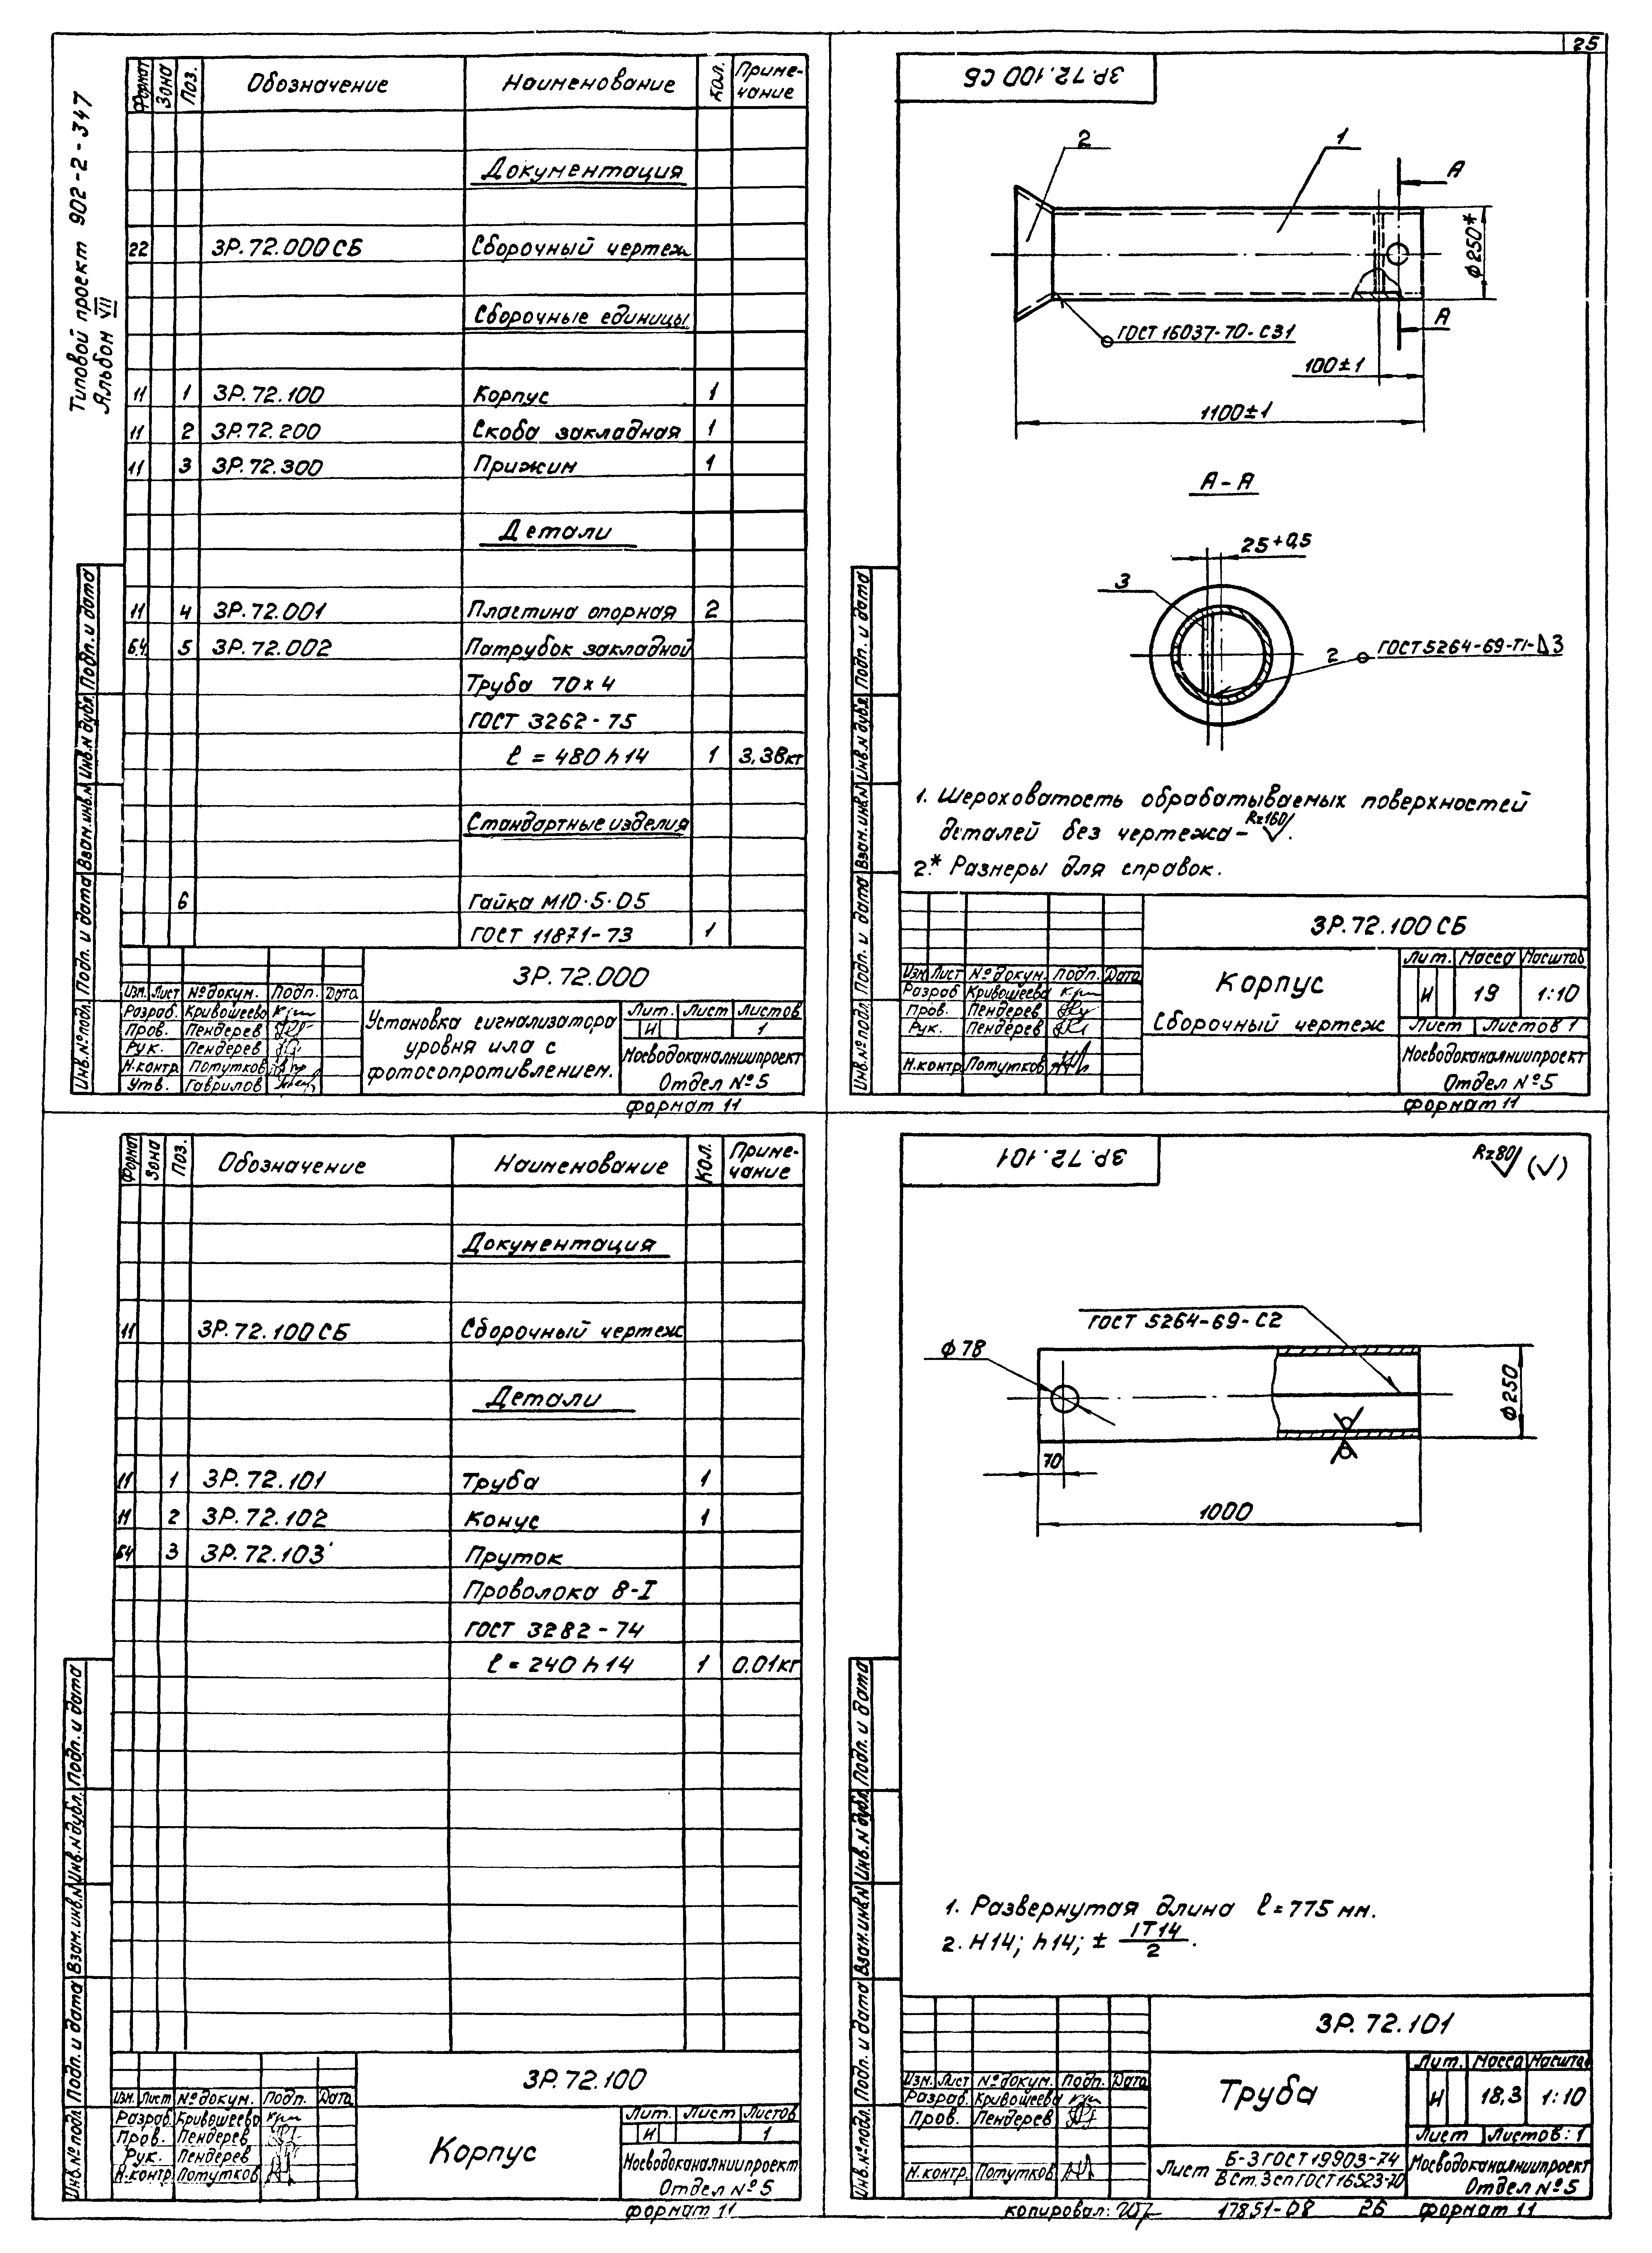 25
Типовой проект 902-2-347
Альбом VII
Формат Зона Поз. Обозначение Наименование Кол. Приме-
чание
Документация
22 3Р.72.000СБ Сборочный чертеж
Сборочные единицы
11 1 3Р.72.100 Корпус 1
11 2 3Р.72.200 Скоба закладная 1
11 3 3Р.72.300 Прижим 1
Детали
11 4 3Р.72.001 Пластина опорная 2
Б.Ч. 5 3Р.72.002 Патрубок закладной
Труба 70×4
ГОСТ 3262-75
ℓ = 480 h14 1 3,38кг
Стандартные изделия
6 Гайка М10·5·05
ГОСТ 11871-73 1
Инв.№подл. Подп. и дата Взам.инв.№ Инв.№ дубл. Подп. и дата
3Р.72.000
Изм. Лист №докум. Подп. Дата
Разраб. Кривошеева
Пров. Пендерев
Рук. Пендерев
Н.контр. Потутков
Утв. Гаврилов
Установка сигнализатора
уровня ила с
фотосопротивлением.
Лит. Лист Листов
И 1
Мосводоканалниипроект
Отдел №5
формат 11
3Р.72.100 СБ
2
1
А
ϕ250*
ГОСТ 16037-70-С31
А
100±1
1100±1
А-А
25+0,5
3
2
ГОСТ 5264-69-Т1-△3
1. Шероховатость обрабатываемых поверхностей
деталей без чертежа- Rz160.
2.* Размеры для справок.
Инв.№подл. Подп. и дата Взам.инв.№ Инв.№ дубл. Подп. и дата
3Р.72.100 СБ
Изм. Лист №докум. Подп. Дата
Разраб Кривошеева
Пров. Пендерев
Рук. Пендерев
Н.контр. Потутков
Корпус
Сборочный чертеж
Лит. Масса Масштаб
И 19 1:10
Лист Листов 1
Мосводоканалниипроект
Отдел №5
формат 11
Формат Зона Поз. Обозначение Наименование Кол. Приме-
чание
Документация
11 3Р.72.100СБ Сборочный чертеж
Детали
11 1 3Р.72.101 Труба 1
11 2 3Р.72.102 Конус 1
БЧ 3 3Р.72.103 Пруток
Проволока 8-I
ГОСТ 3282-74
ℓ = 240 h14 1 0.01кг
Инв.№подл. Подп. и дата Взам.инв.№ Инв.№ дубл. Подп. и дата
3Р.72.100
Изм. Лист №докум. Подп. Дата
Разраб. Кривошеева
Пров. Пендерев
Рук. Пендерев
Н.контр. Потутков
Корпус
Лит. Лист Листов
И 1
Мосводоканалниипроект
Отдел №5
формат 11
3Р.72.101
Rz80 (√)
ГОСТ 5264-69-С2
ϕ78
ϕ250
70
1000
1. Развернутая длина ℓ=775 мм.
2. Н14; h14; ± IT14/2.
Инв.№подл. Подп. и дата Взам.инв.№ Инв.№ дубл. Подп. и дата
3Р.72.101
Изм. Лист №докум. Подп. Дата
Разраб. Кривошеева
Пров. Пендерев
Н.контр. Потутков
Труба
Лит. Масса Масштаб
И 18,3 1:10
Лист Листов: 1
Лист Б-3 ГОСТ 19903-74
ВСт.3сп ГОСТ 16523-70
Мосводоканалниипроект
Отдел №5
копировал: 17851-08 26 формат 11